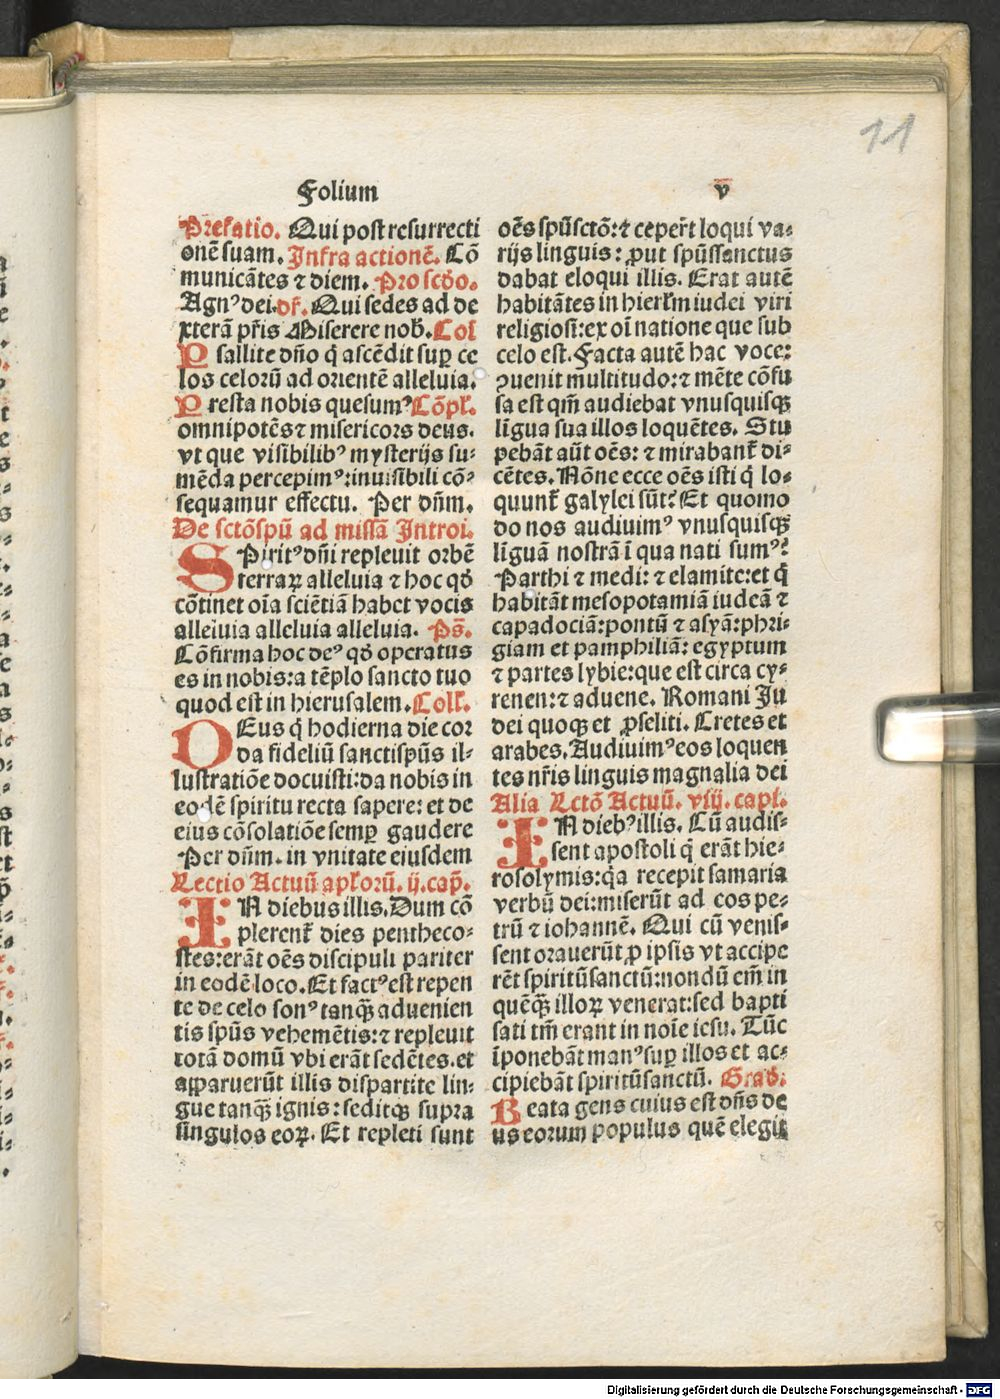 11
Folium v
Prefatio. Qui post resurrecti
onē suam. Infra actionē. Cō
municātes ⁊ diem. Pro scdo.
Agnꝰ dei. dr̄. Qui sedes ad de
xterā pr̄is Miserere nob̄. Cōl
Psallite dn̄o q̄ ascēdit suꝑ ce
los celorū ad orientē alleluia.
Presta nobis quesumꝰ Cōpl̄.
omnipotēs ⁊ misericors deus.
vt que visibilibꝰ mysterijs su⸗
mēda percepimꝰ: inuisibili cō⸗
sequamur effectu. Per dn̄m.
De sctōspū ad missā Introi.
SPiritꝰ dn̄i repleuit orbē
terraꝝ alleluia ⁊ hoc qd̄
cōtinet oīa sciētiā habet vocis
alleluia alleluia alleluia. Ps̄.
Cōfirma hoc deꝰ qd̄ operatus
es in nobis: a tēplo sancto tuo
quod est in hierusalem. Coll̄.
DEus q̄ hodierna die cor
da fideliū sanctispūs il⸗
lustratiōe docuisti: da nobis in
eodē spiritu recta sapere: et de
eius cōsolatiōe semꝑ gaudere
Per dn̄m. in vnitate eiusdem
Lectio Actuū apl̄orū. ij. cap̄.
IN diebus illis. Dum cō
plerent̄ dies pentheco⸗
stes: erāt oēs discipuli pariter
in eodē loco. Et factꝰ est repen
te de celo sonꝰ tanqꝫ aduenien
tis spūs vehemētis: ⁊ repleuit
totā domū vbi erāt sedētes. et
apparuerūt illis dispartite lin⸗
gue tanqꝫ ignis: seditqꝫ supra
singulos eoꝝ. Et repleti sunt
oēs spūsctō: ⁊ ceper̄t loqui va⸗
rijs linguis: ꝓut spūssanctus
dabat eloqui illis. Erat autē
habitātes in hierl̄m iudei viri
religiosi: ex oī natione que sub
celo est. Facta autē hac voce:
ꝯuenit multitudo: ⁊ mēte cōfu
sa est qm̄ audiebat vnusquisqꝫ
līgua sua illos loquētes. Stu
pebāt aūt oēs: ⁊ mirabant̄ di⸗
cētes. Nōne ecce oēs isti q̄ lo⸗
quunt̄ galylei sūt? Et quomo
do nos audiuimꝰ vnusquisqꝫ
līguā nostrā ī qua nati sumꝰ?
Parthi ⁊ medi: ⁊ elamite: et q̄
habitāt mesopotamiā iudeā ⁊
capadociā: pontū ⁊ asyā: phri⸗
giam et pamphiliā: egyptum
⁊ partes lybie: que est circa cy⸗
renen: ⁊ aduene. Romani Ju
dei quoqꝫ et ꝓseliti. Cretes et
arabes. Audiuimꝰ eos loquen
tes nr̄is linguis magnalia dei
Alia Lctō Actuū. viij. capl̄.
IN diebꝰ illis. Cū audis⸗
sent apostoli q̄ erāt hie⸗
rosolymis: qa recepit samaria
verbū dei: miserūt ad eos pe⸗
trū ⁊ iohannē. Qui cū venis⸗
sent orauerūt ꝓ ipsis vt accipe
rēt spiritūsanctū: nondū em̄ in
quēqꝫ illoꝝ venerat: sed bapti
sati tm̄ erant in noīe iesu. Tūc
īponebāt manꝰ suꝑ illos et ac⸗
cipiebāt spiritūsanctū. Grad̄.
Beata gens cuius est dn̄s de
us eorum populus quē elegit
Digitalisierung gefördert durch die Deutsche Forschungsgemeinschaft - DFG